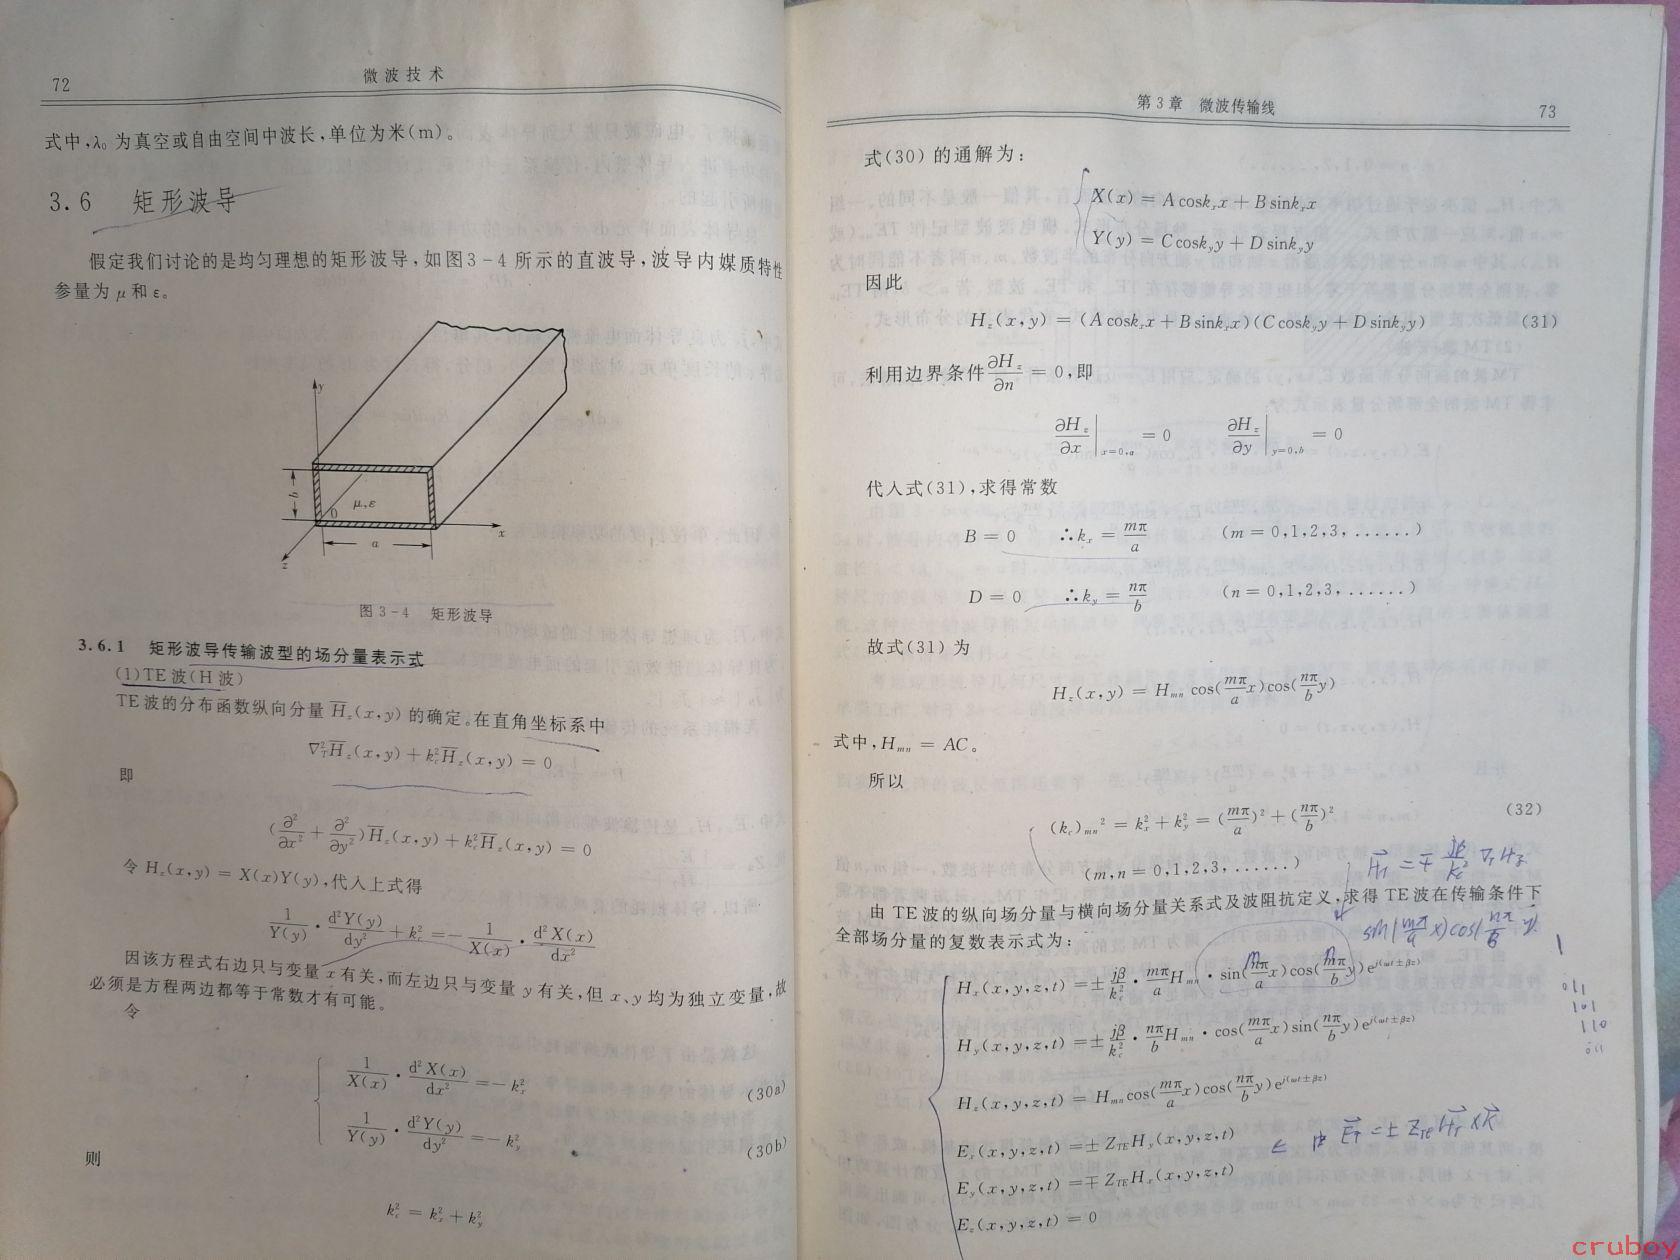 72
微波技术
式中,λ₀ 为真空或自由空间中波长,单位为米(m)。
3.6 矩形波导
假定我们讨论的是均匀理想的矩形波导,如图3-4所示的直波导,波导内媒质特性
参量为 μ 和 ε。
y
b
μ,ε
0
x
a
z
图 3-4 矩形波导
3.6.1 矩形波导传输波型的场分量表示式
(1)TE 波(H 波)
TE 波的分布函数纵向分量 H̅_z(x,y) 的确定。在直角坐标系中
∇²_T H̅_z(x,y) + k²_c H̅_z(x,y) = 0
即
(∂²/∂x² + ∂²/∂y²)H̅_z(x,y) + k²_c H̅_z(x,y) = 0
令 H_z(x,y) = X(x)Y(y),代入上式得
1/Y(y) · d²Y(y)/dy² + k²_c = − 1/X(x) · d²X(x)/dx²
因该方程式右边只与变量 x 有关,而左边只与变量 y 有关,但 x、y 均为独立变量,故
必须是方程两边都等于常数才有可能。
令
1/X(x) · d²X(x)/dx² = − k²_x (30a)
1/Y(y) · d²Y(y)/dy² = − k²_y (30b)
则
k²_c = k²_x + k²_y
第 3 章 微波传输线
73
式(30) 的通解为:
X(x) = A cosk_x x + B sink_x x
Y(y) = C cosk_y y + D sink_y y
因此
H_z(x,y) = (A cosk_x x + B sink_x x)(C cosk_y y + D sink_y y) (31)
利用边界条件 ∂H_z/∂n = 0,即
∂H_z/∂x |x=0,a = 0 ∂H_z/∂y |y=0,b = 0
代入式(31),求得常数
B = 0 ∴k_x = mπ/a (m = 0,1,2,3, ......)
D = 0 ∴k_y = nπ/b (n = 0,1,2,3, ......)
故式(31) 为
H_z(x,y) = H_mn cos(mπ/a x)cos(nπ/b y)
式中,H_mn = AC。
所以
(k_c)_mn² = k²_x + k²_y = (mπ/a)² + (nπ/b)² (32)
(m,n = 0,1,2,3, ......)
H⃗_T = ∓ jβ/k_c² ∇_T H_z
由 TE 波的纵向场分量与横向场分量关系式及波阻抗定义,求得 TE 波在传输条件下
全部场分量的复数表示式为:
sin(mπ/a x)cos(nπ/B y)
H_x(x,y,z,t) = ± jβ/k²_c · mπ/a H_mn · sin(mπ/a x)cos(nπ/b y)e^j(ωt±βz)
H_y(x,y,z,t) = ± jβ/k²_c · nπ/b H_mn · cos(mπ/a x)sin(nπ/b y)e^j(ωt±βz)
H_z(x,y,z,t) = H_mn cos(mπ/a x)cos(nπ/b y)e^j(ωt±βz)
E_x(x,y,z,t) = ± Z_TE H_y(x,y,z,t)
E_y(x,y,z,t) = ∓ Z_TE H_x(x,y,z,t)
E_z(x,y,z,t) = 0
由 E⃗_T = ± Z_TE H⃗_T × K⃗
1
011
101
110
011
cruboy